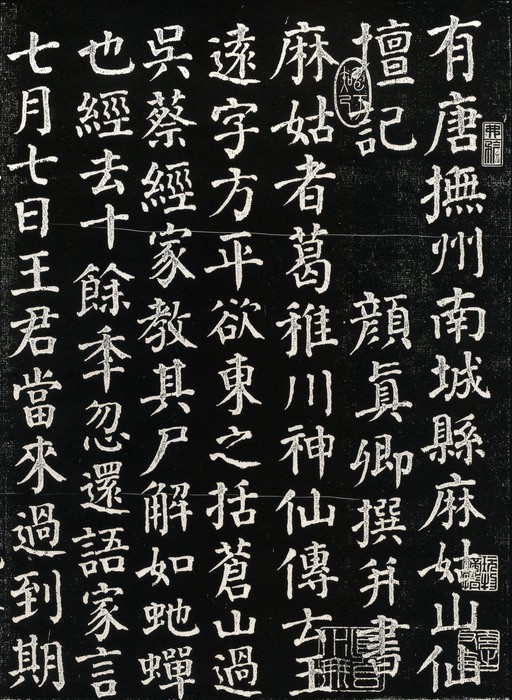 有唐撫州南城縣麻姑山仙
壇記 顔真卿撰并書
麻姑者葛稚川神仙傳云王
遠字方平欲東之括蒼山過
吳蔡經家教其尸解如虵蟬
也經去十餘年忽還語家言
七月七日王君當來過到期